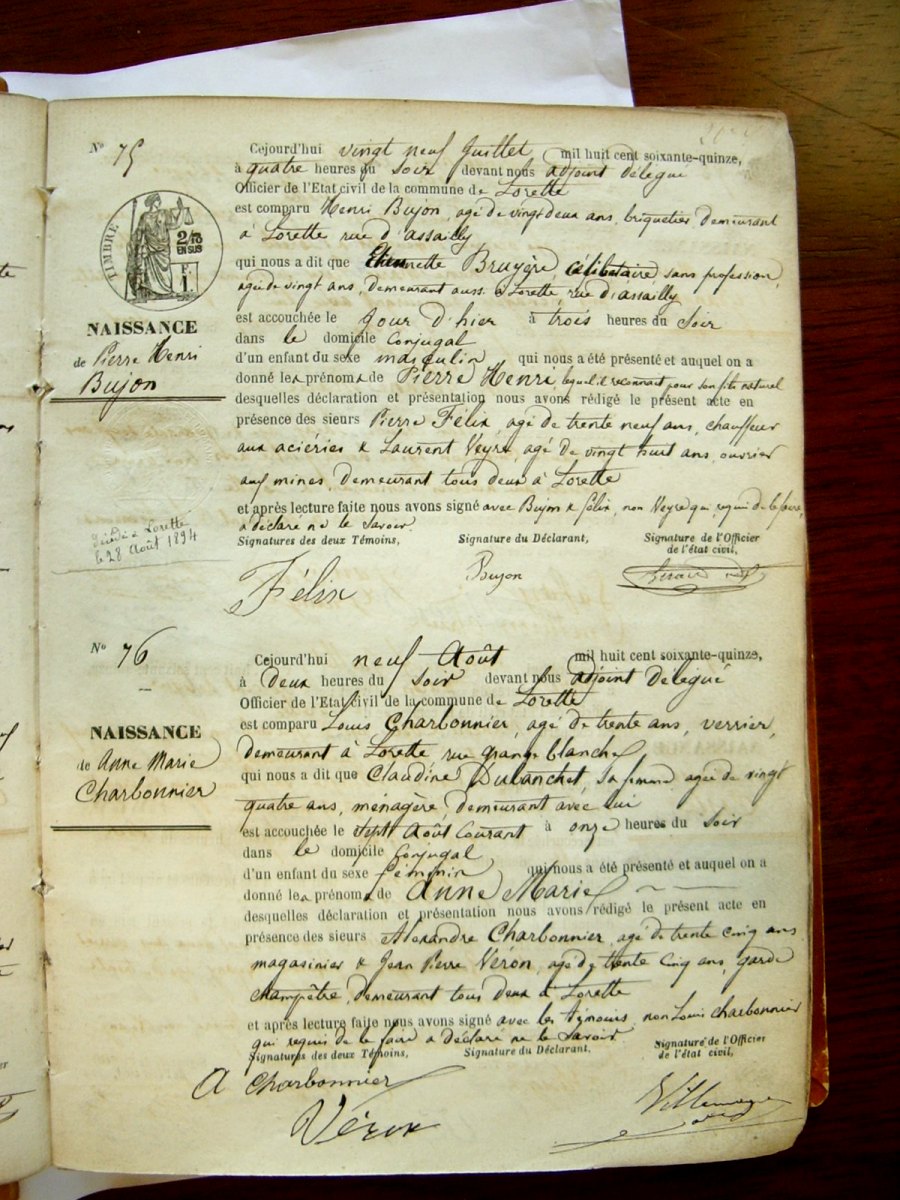 N° 75
Cejourd'hui vingt neuf Juillet mil huit cent soixante-quinze,
à quatre heures du soir devant nous adjoint délégué
Officier de l'Etat civil de la commune de Lorette
est comparu Henri Bujon, agé de vingt deux ans, briquetier demeurant
à Lorette rue d'assailly
qui nous a dit que Etiennette Bruyère, célibataire, sans profession,
agée de vingt ans, demeurant aussi à Lorette, rue d'assailly
est accouchée le jour d'hier à trois heures du soir
dans le domicile Conjugal
d'un enfant du sexe masculin qui nous a été présenté et auquel on a
donné les prénoms de Pierre Henri, lequel il reconnait pour son fils naturel
desquelles déclaration et présentation nous avons rédigé le présent acte en
présence des sieurs Pierre Félix, agé de trente neuf ans, chauffeur
aux aciéries & Laurent Veyre, agé de vingt huit ans, ouvrier
aux mines, demeurant tous deux à Lorette
et après lecture faite nous avons signé avec Bujon & félix, non Veyre qui requis de le faire,
a déclaré ne le savoir
Signatures des deux Témoins, Signature du Déclarant, Signature de l'Officier
de l'état civil,
Félix Bujon
TIMBRE
2/10
EN SUS
F.
1.
NAISSANCE
de Pierre Henri
Bujon
à Lorette
le 28 Août 1894
N° 76
Cejourd'hui neuf Août mil huit cent soixante-quinze,
à deux heures du soir devant nous adjoint délégué
Officier de l'Etat civil de la commune de Lorette
est comparu Louis Charbonnier, agé de trente ans, verrier,
demeurant à Lorette, rue grange blanche
qui nous a dit que Claudine Dublanchet, sa femme agée de vingt
quatre ans, ménagère, demeurant avec lui
est accouchée le sept Août Courant à onze heures du soir
dans le domicile Conjugal
d'un enfant du sexe féminin qui nous a été présenté et auquel on a
donné les prénoms de Anne Marie
desquelles déclaration et présentation nous avons rédigé le présent acte en
présence des sieurs Alexandre Charbonnier, agé de trente cinq ans
magasinier & Jean Pierre Véron, agé de trente cinq ans, garde
champêtre, demeurant tous deux à Lorette
et après lecture faite nous avons signé avec les témoins, non Louis Charbonnier
qui requis de le faire a déclaré ne le savoir
Signatures des deux Témoins, Signature du Déclarant. Signature de l'Officier
de l'état civil,
A Charbonnier
Véron
NAISSANCE
de Anne Marie
Charbonnier